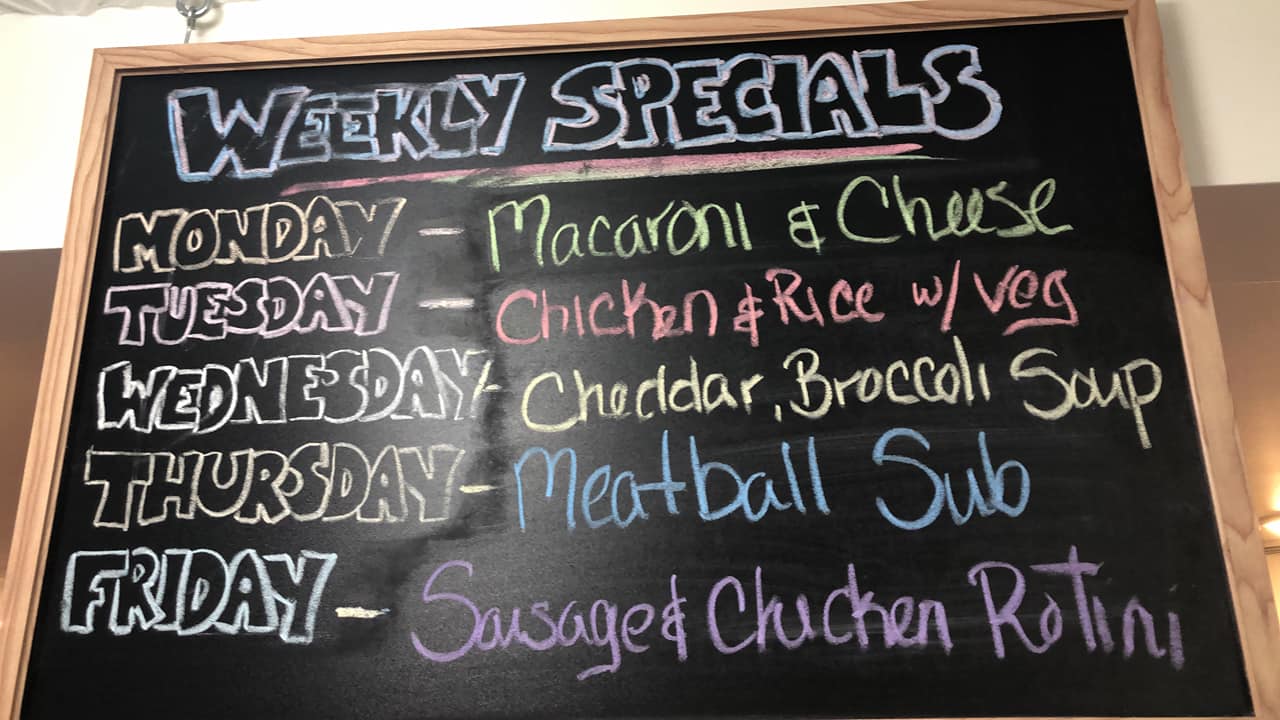 WEEKLY SPECIALS
MONDAY - Macaroni & Cheese
TUESDAY - Chicken & Rice w/ Veg
WEDNESDAY - Cheddar, Broccoli Soup
THURSDAY - Meatball Sub
FRIDAY - Sausage & Chicken Rotini